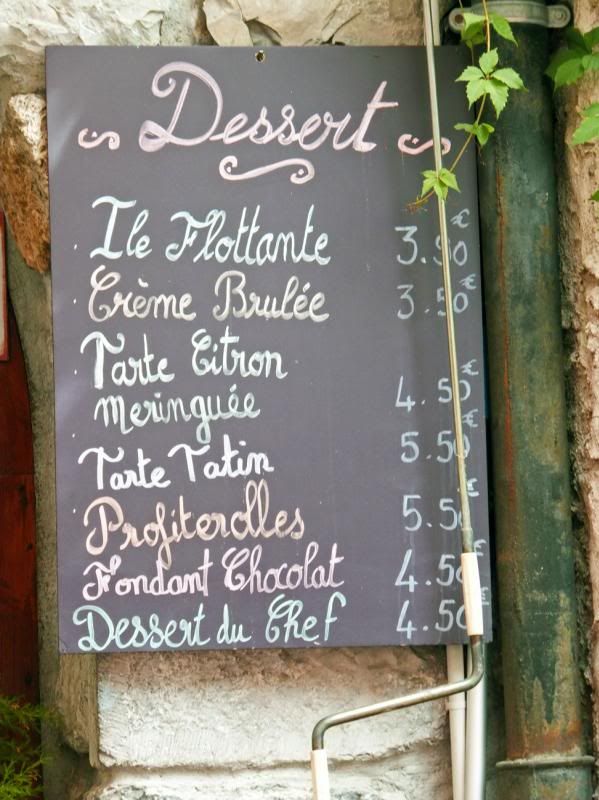 Dessert
Ile Flottante 3.50€
Crème Brulée 3.50€
Tarte Citron
meringuée 4.50€
Tarte Tatin 5.50€
Profiterolles 5.50€
Fondant Chocolat 4.50€
Dessert du Chef 4.50€